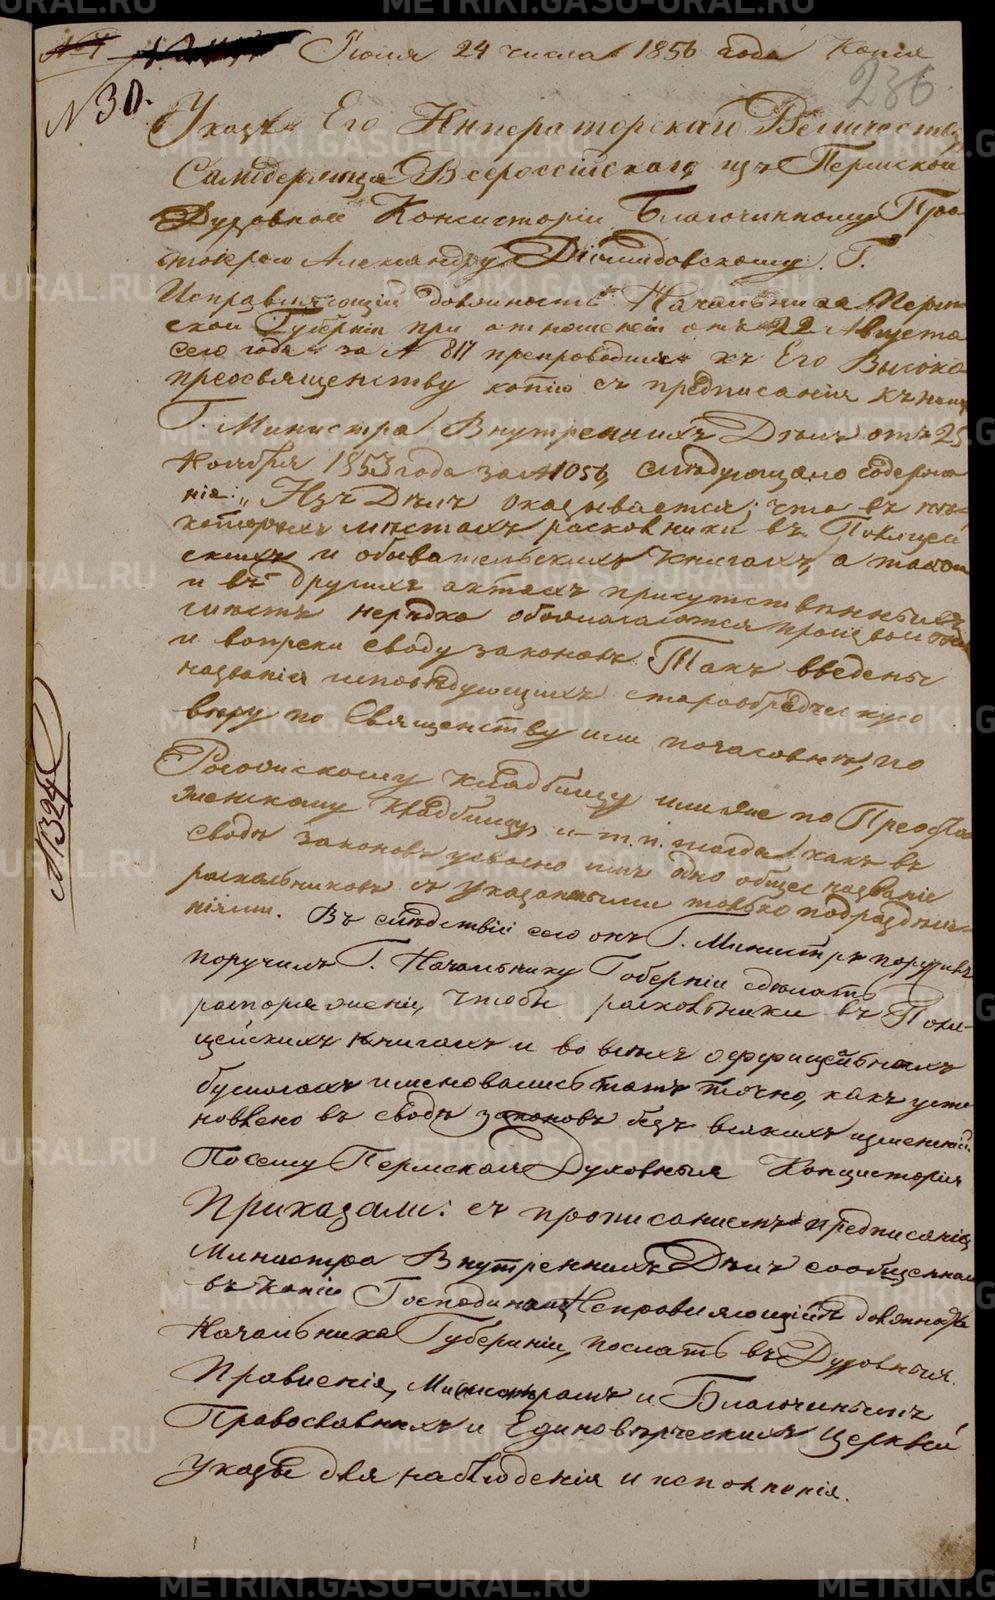 № 30. Июля 24 числа 1856 года Копія
236
Указъ Его Императорскаго Величества
Самодержца Всероссійскаго изъ Пермской
Духовной Консисторіи Благочинному Прото
іерею Александру Діомидовскому. Г.
Исправляющій должность Начальника Перм
ской Губерніи при отношеніи отъ 22 Августа
сего года за № 817 препроводилъ къ Его Высоко
преосвященству копію съ предписанія къ нему
Г. Министра Внутреннихъ Дѣлъ отъ 25
Ноября 1853 года за № 1056, слѣдующаго содержа
нія: „Изъ Дѣлъ оказывается, что въ нѣ
которыхъ мѣстахъ расковники въ Полицей
скихъ и обывательскихъ книгахъ, а также
и въ другихъ актахъ присутственныхъ
мѣстъ нерѣдко обозначаются произвольно
и вопреки своду законовъ. Такъ введены
названія исповѣдующихъ старообрядческую
вѣру по Священству или по часовнѣ, по
Рогожскому кладбищу или же по Преобра
женскому кладбищу и т. п. тогда какъ въ
сводѣ законовъ усвоено имъ одно общее названіе
раскольниковъ съ указанными только подраздѣле
ніями. Въ слѣдствіи сего онъ Г. Министръ поручивъ
поручилъ Г. Начальнику Губерніи сдѣлать
распоряженіе, чтобы расковники въ Поли
цейскихъ книгахъ и во всѣхъ оффиціальныхъ
бумагахъ именовались такъ точно, какъ уста
новлено въ сводѣ законовъ безъ всякихъ измѣненій
Посему Пермская Духовная Консисторія
Приказали: съ прописаніемъ предписанія
Министра Внутреннихъ Дѣлъ сообщеннаго
въ копіи Господиномъ Исправляющимъ должность
Начальника Губерніи, послать въ Духовныя
Правленія, Миссіонерамъ и Благочиннымъ
Православныхъ и Единовѣрческихъ церквей
Указы для наблюденія и исполненія.
№ 1324
METRIKI.GASO-URAL.RU